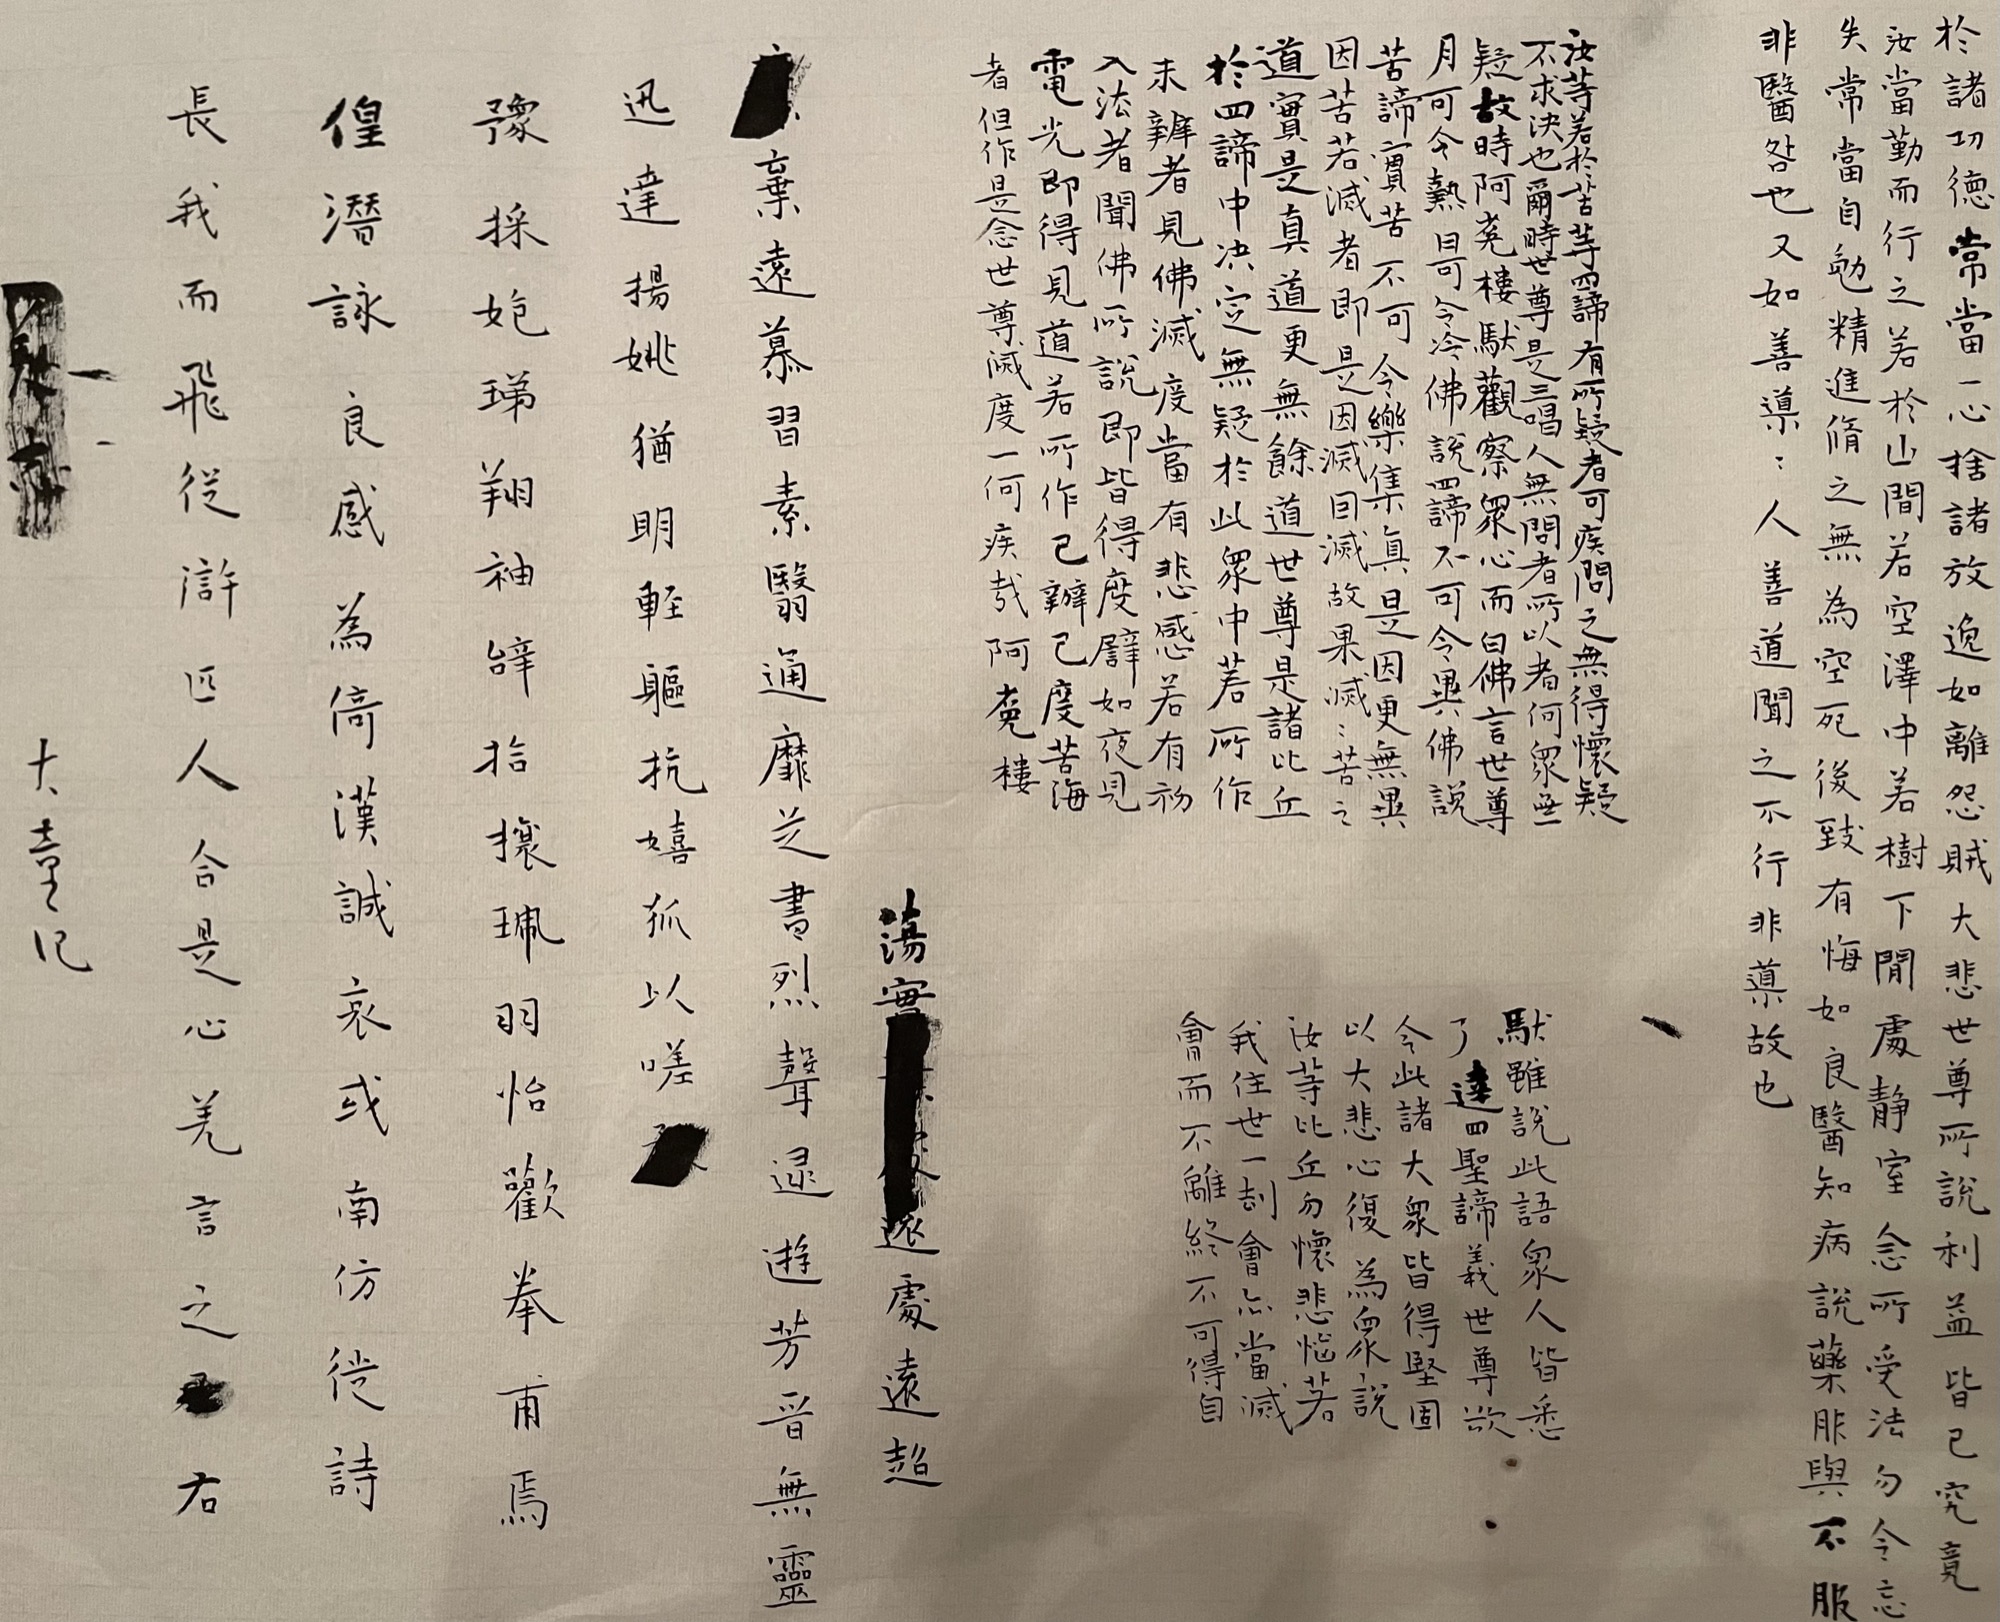 於諸功德常當一心捨諸放逸如離怨賊大悲世尊所説利益皆已究竟
汝當勤而行之若於山間若空澤中若樹下閒處靜室念所受法勿令忘
失常當自勉精進脩之無為空死後致有悔如良醫知病説藥服與不服
非醫咎也又如善導〻人善道聞之不行非導故也
汝等若於苦等四諦有所疑者可疾問之無得懷疑
不求決也爾時世尊是三唱人無問者所以者何眾無
疑故時阿㝹樓馱觀察眾心而白佛言世尊
月可令熱日可令冷佛説四諦不可令異佛説
苦諦實苦不可令樂集真是因更無異
因苦若滅者即是因滅因滅故果滅〻苦之
道實是真道更無餘道世尊是諸比丘
於四諦中决定無疑於此眾中若所作
未辦者見佛滅度當有悲感若有初
入法者聞佛所説即皆得度譬如夜見
電光即得見道若所作已辦已度苦海
者但作是念世尊滅度一何疾哉阿㝹樓
馱雖説此語眾人皆悉
了達四聖諦義世尊欲
令此諸大眾皆得堅固
以大悲心復為眾説
汝等比丘勿懷悲惱若
我住世一刧會亦當滅
會而不離終不可得自
蕩實遠處遠超
棄遠慕習素翳通靡芝書烈聲逯遊芳晉無靈
迅達揚姚猶明輕軀抗嬉狐以嗟
豫採㚿珶翔袖辝拾攘珮羽怡歡奉甫焉
偟潛詠良感為倚漢誠哀或南仿徙詩
長我而飛從滸匹人合是心羌言之右
大童记